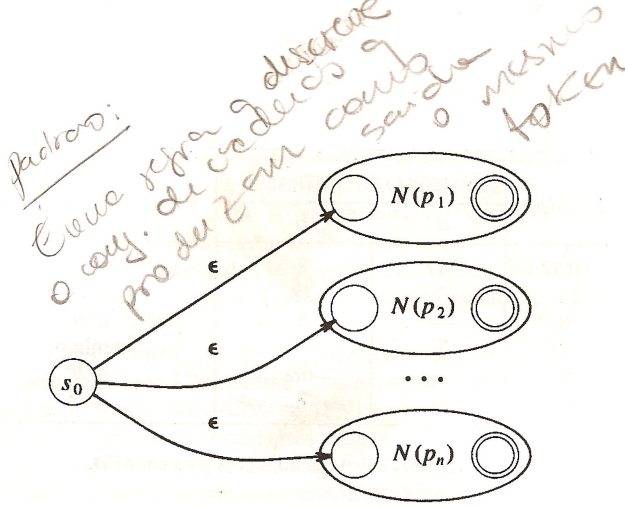 padrão:
É uma regra q descreve
o conj. de cadeias q
produzam como saída o mesmo
token
N(p1)
ϵ
N(p2)
ϵ
s0
...
ϵ
N(pn)